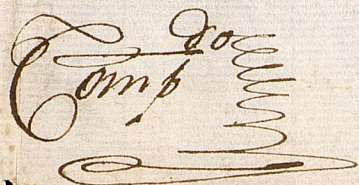 Comp do